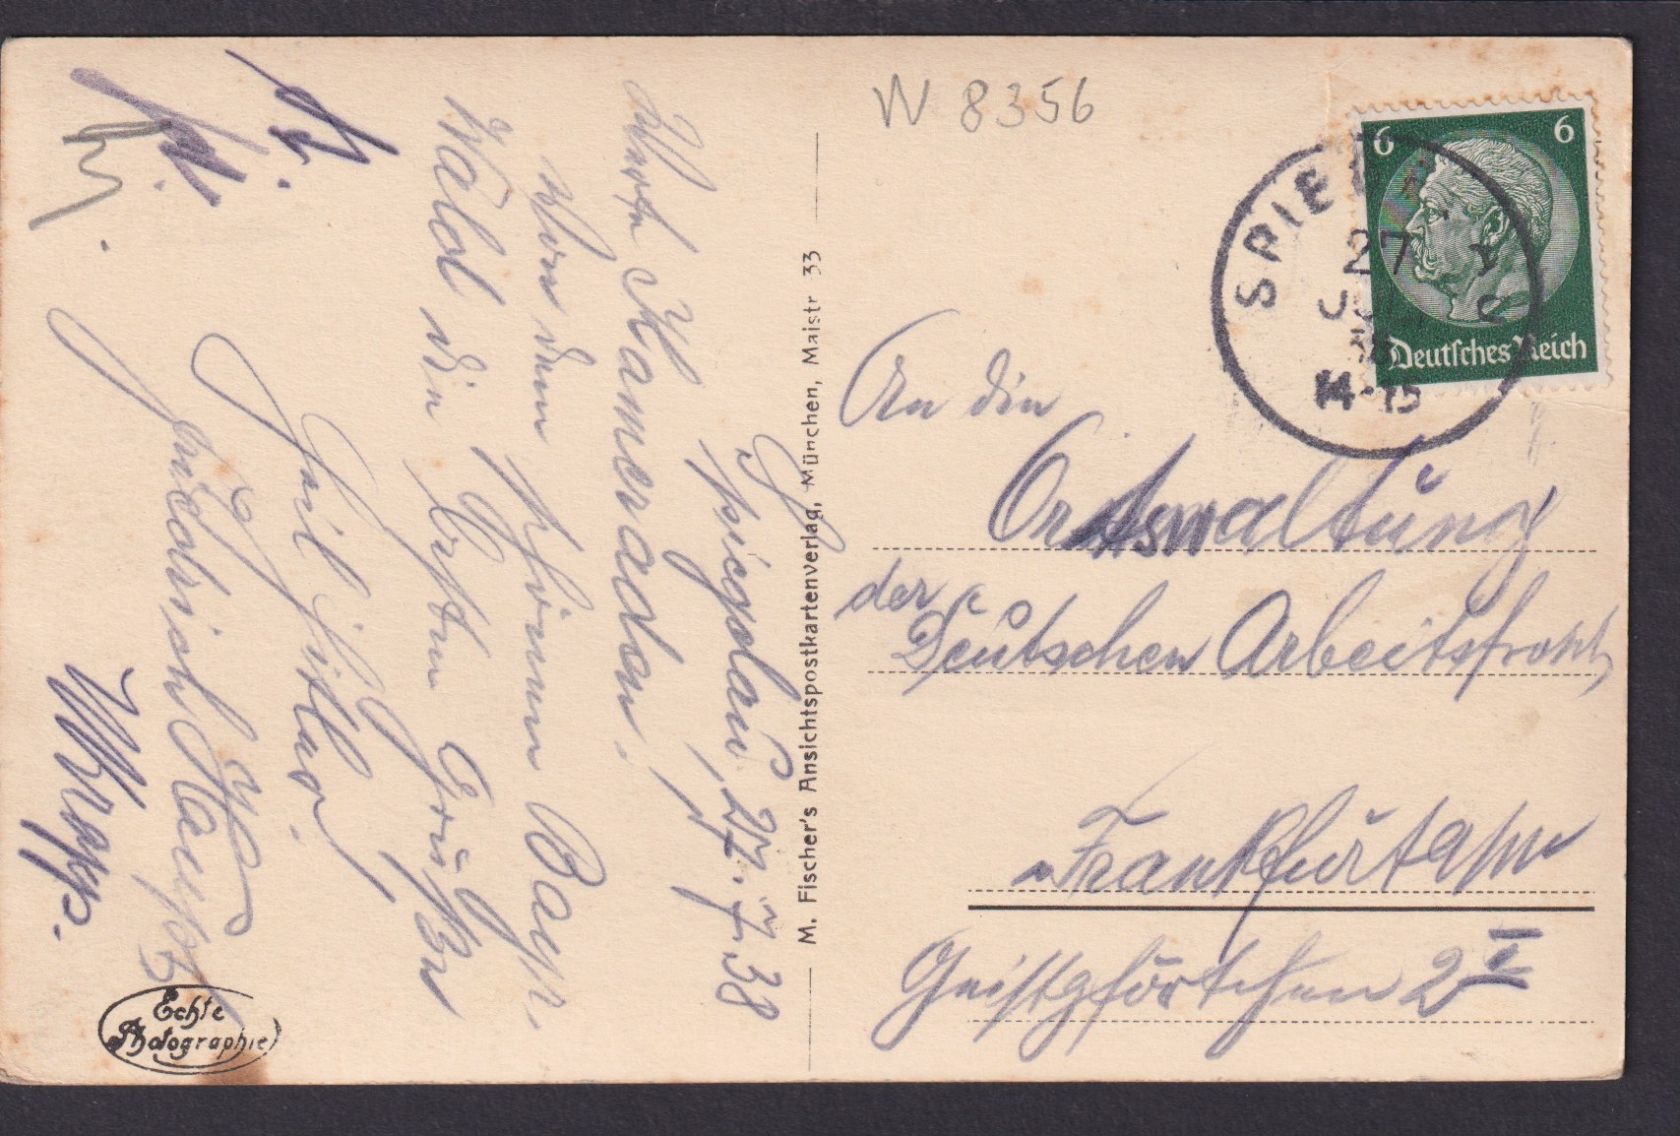 W 8356
Spiegelau, 27. 7. 38
Werte Kameraden!
Von dem schönen Bayr.
Wald die besten Grüßen
Heil Hitler!
Friedrich
M. Fischer's Ansichtspostkartenverlag, München, Maistr 33
Echte
Photographie
6 6
Deutsches Reich
SPIE
27
14-15
An die
Ortswaltung
der
Deutschen Arbeitsfront
Frankfurt a/M
Geistpförtchen 2